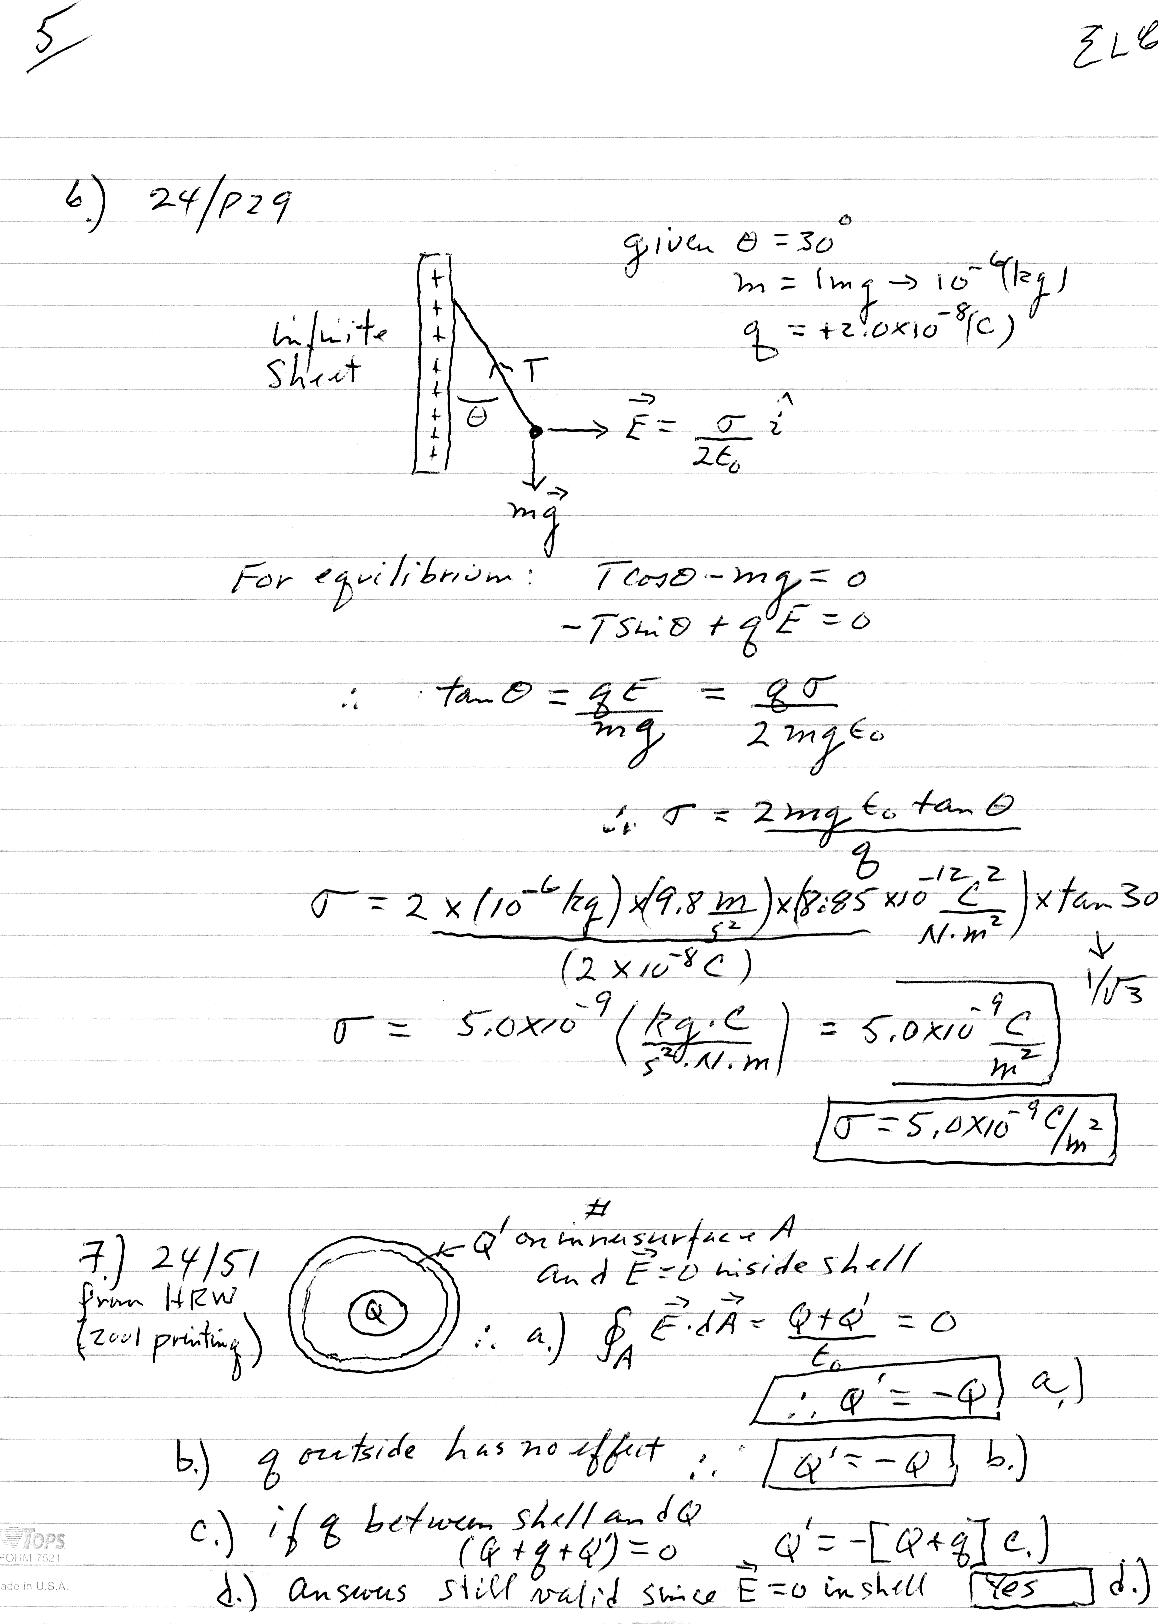 5
ELB
6.) 24/P29
given θ = 30°
m = 1mg → 10⁻⁶(kg)
q = +2.0×10⁻⁸(C)
infinite
sheet
+
+
+
+
+
+
+
+
T
θ
E⃗ = σ/2ε₀ î
mg⃗
For equilibrium: Tcosθ - mg = 0
-Tsinθ + qE = 0
∴ tanθ = qE/mg = qσ/2mgε₀
∴ σ = 2mgε₀ tanθ/q
σ = 2×(10⁻⁶kg)×(9.8 m/s²)×(8.85×10⁻¹² C²/N·m²)×tan 30
(2×10⁻⁸C)
↓
1/√3
σ = 5.0×10⁻⁹ (kg·C/s²·N·m) = 5.0×10⁻⁹ C/m²
σ = 5.0×10⁻⁹ C/m²
7.) 24/51
from HRW
(2001 printing)
Q
← Q' on inner surface A
and E⃗ = 0 inside shell
∴ a.) ∮_A E⃗·dA⃗ = Q+Q'/ε₀ = 0
∴ Q' = -Q a.)
b.) q outside has no effect ∴ Q' = -Q b.)
c.) if q between shell and Q
(Q+q+Q') = 0 Q' = -[Q+q] c.)
d.) answers still valid since E⃗ = 0 in shell Yes d.)
TOPS
FORM 7521
ade in U.S.A.